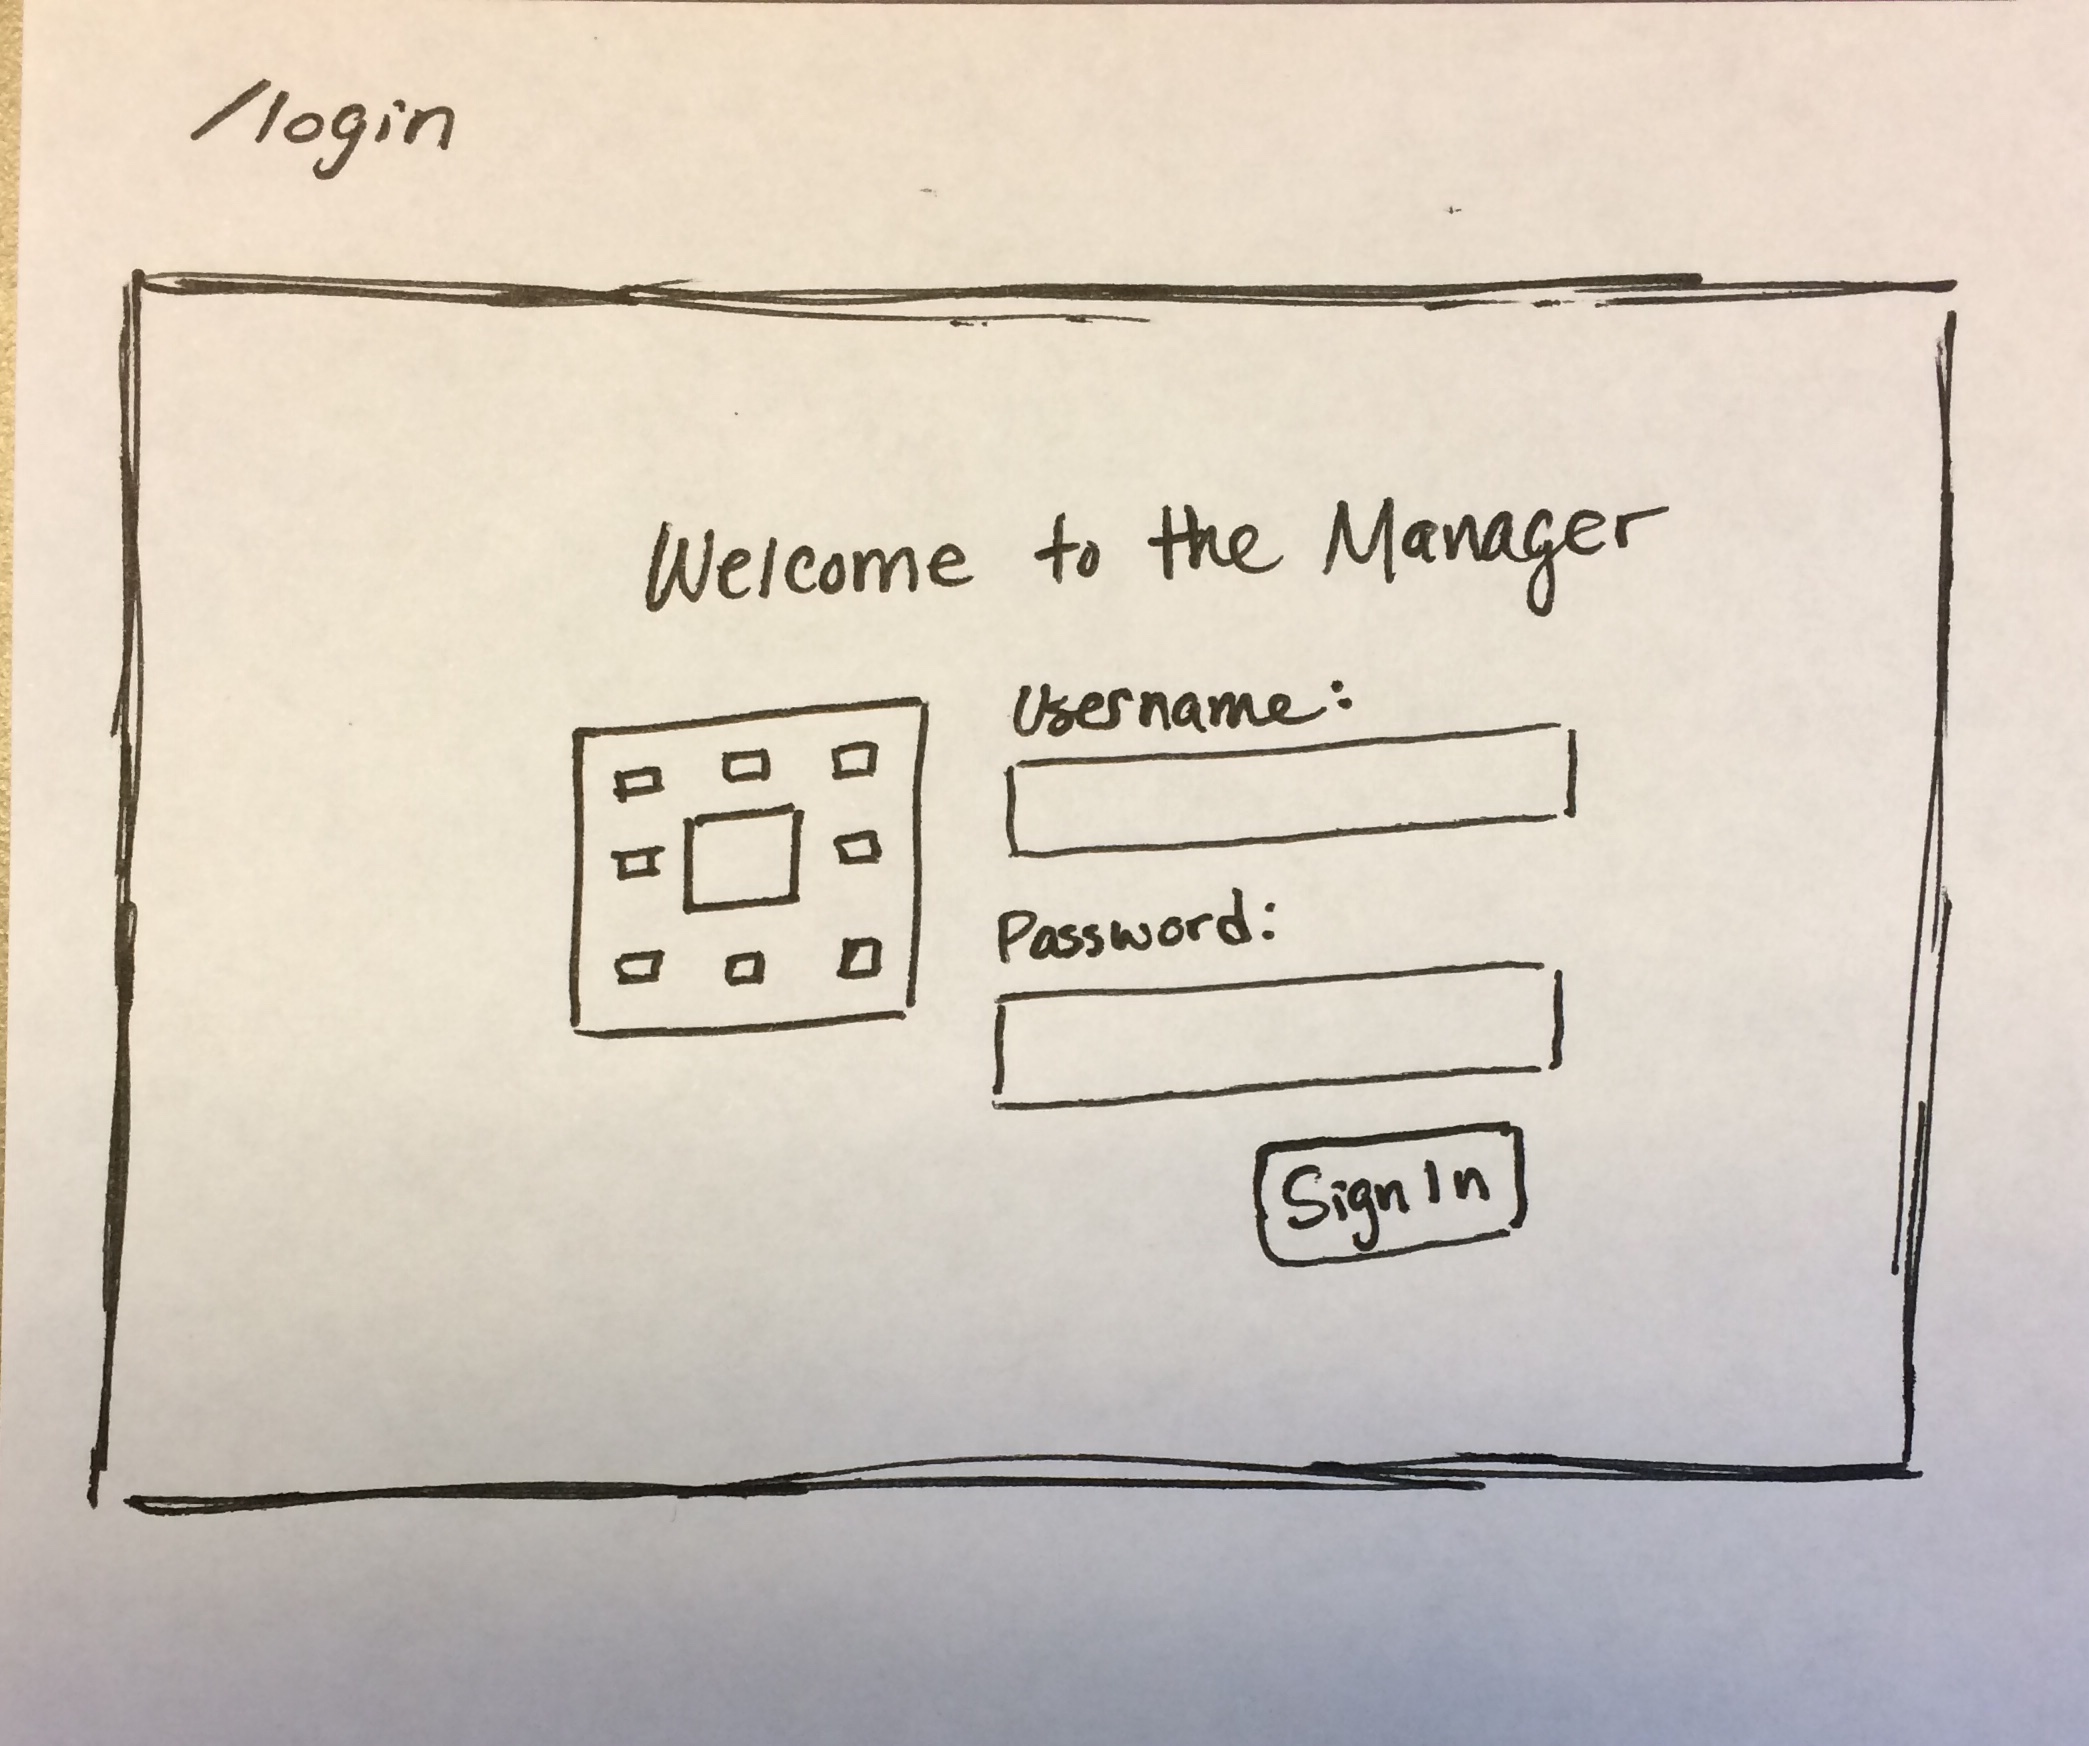 /login
Welcome to the Manager
Username:
Password:
Sign In